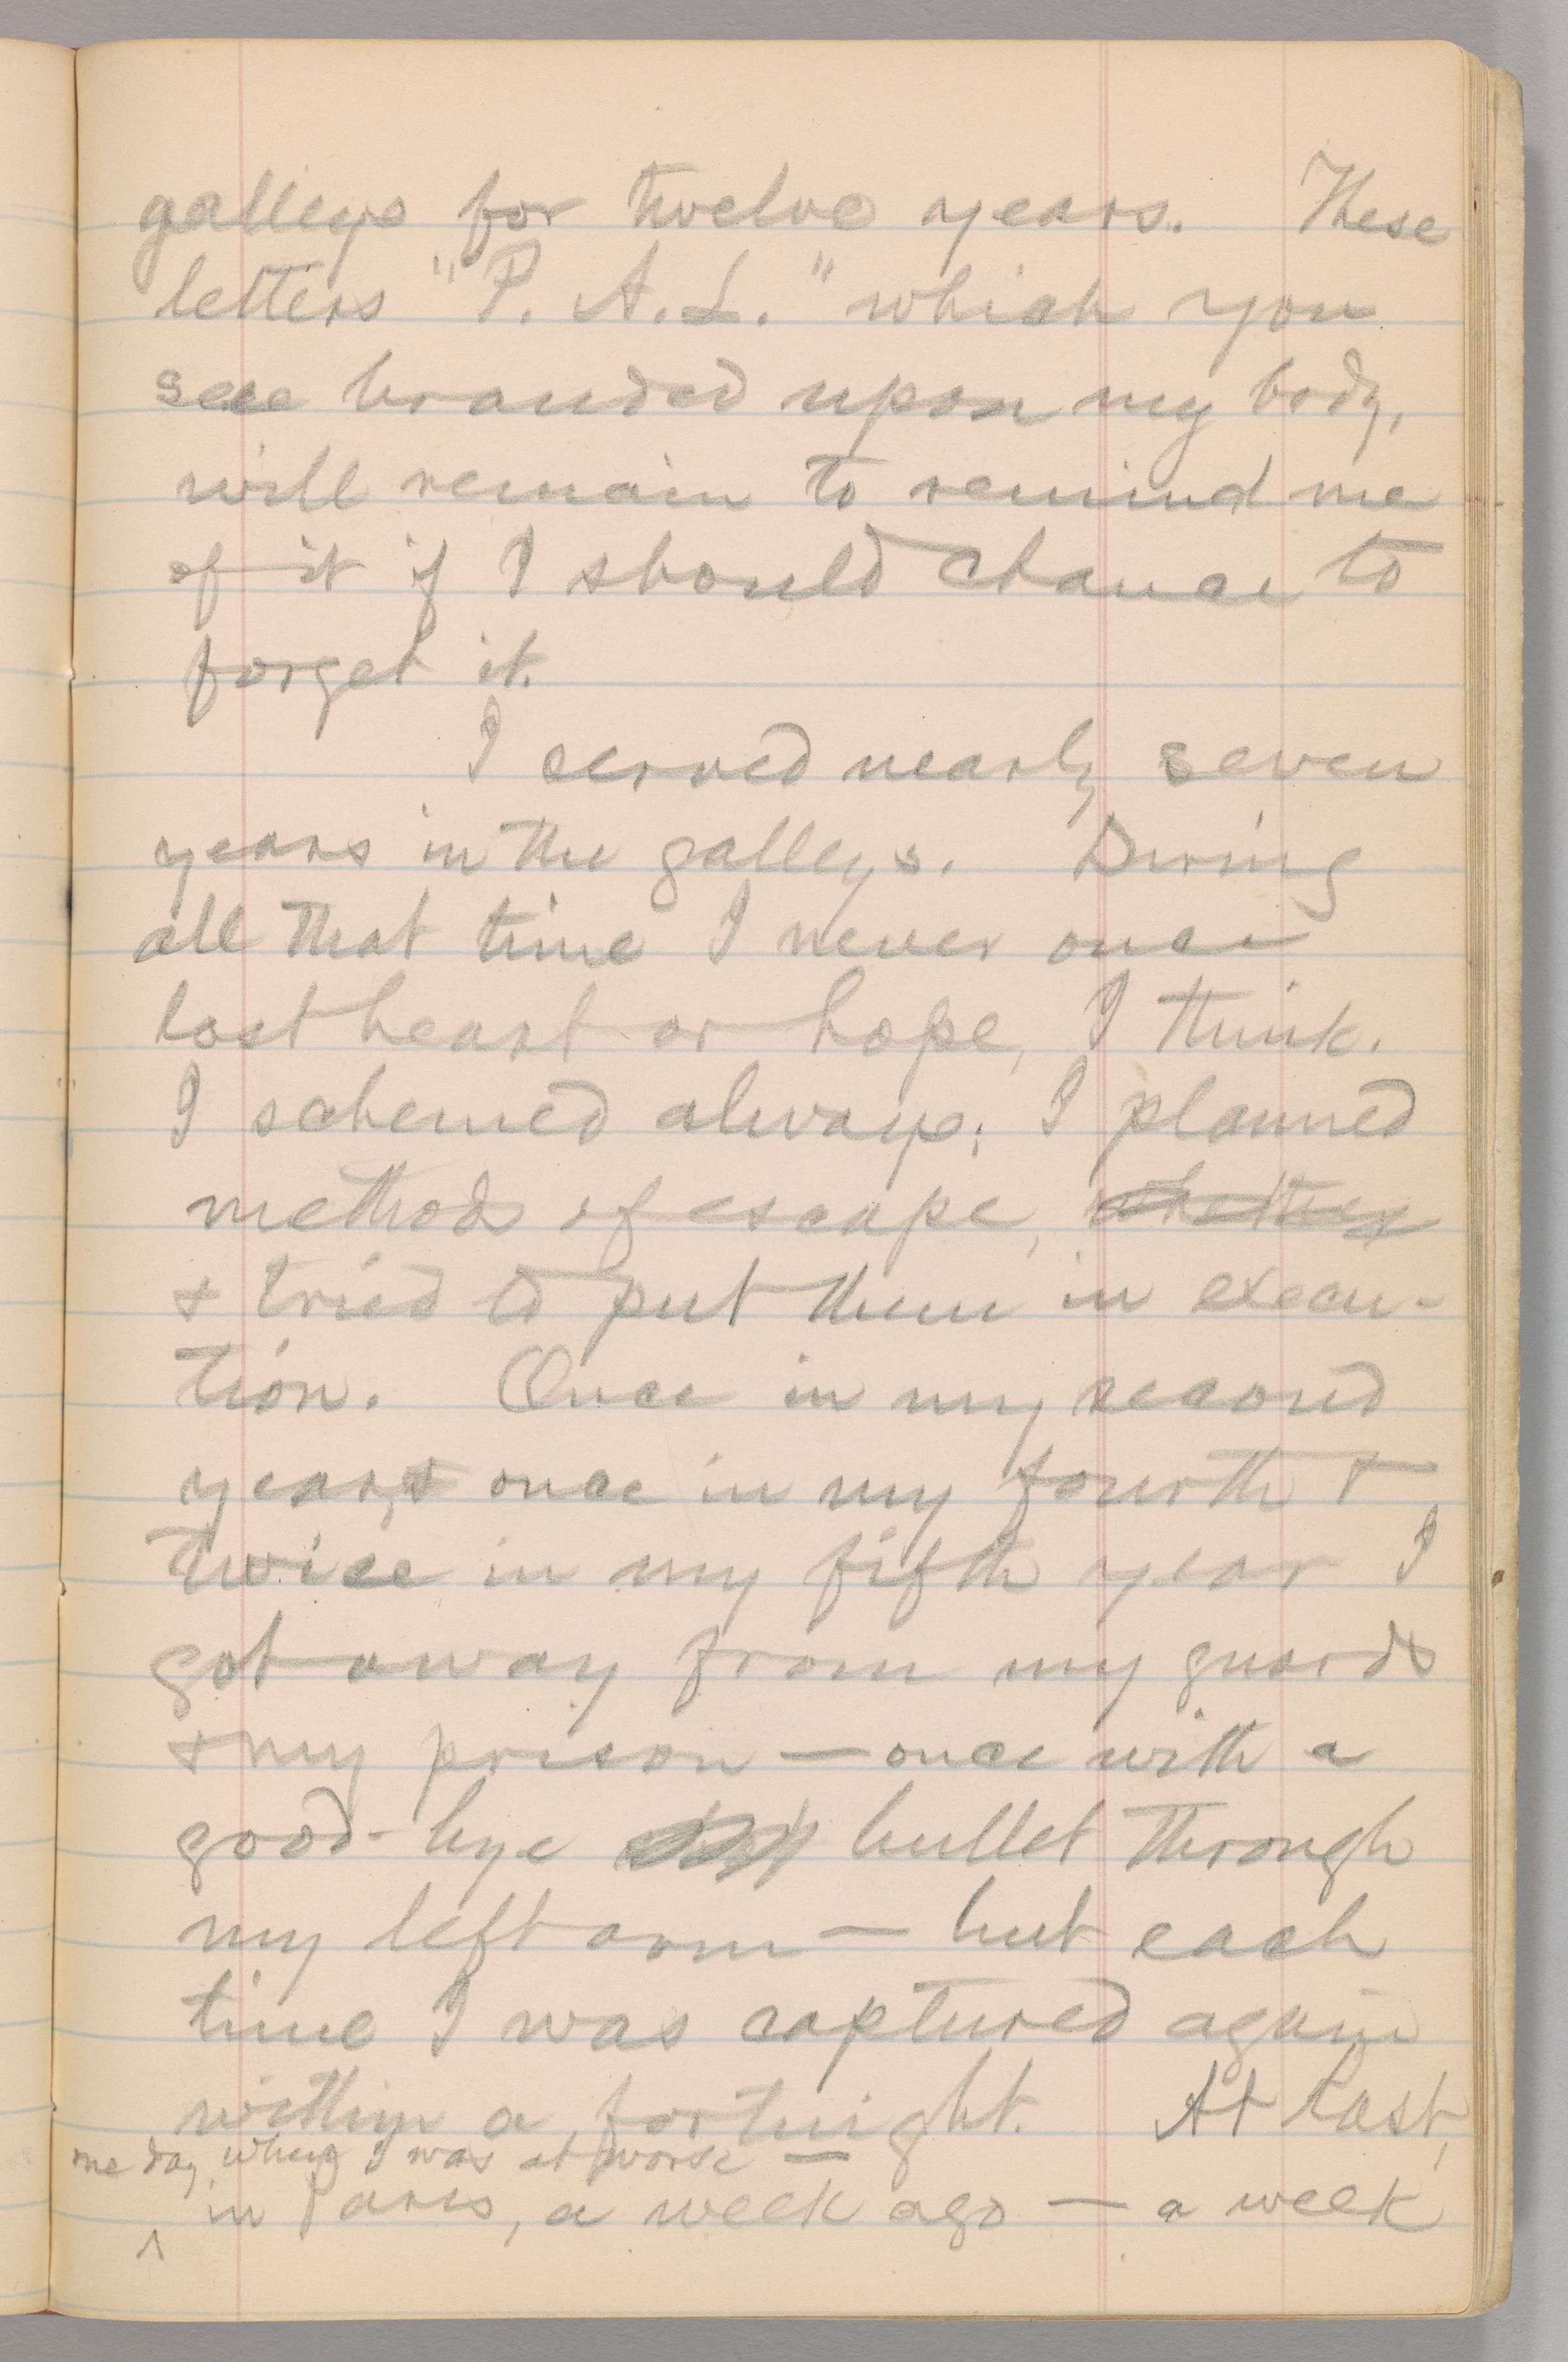 galleys for twelve years. These
letters "P. A. L." which you
see branded upon my body,
will remain to remind me
of it if I should chance to
forget it.
I served nearly seven
years in the galleys. During
all that time I never once
lost heart or hope, I think.
I schemed always; I planned
methods of escape,
& tried to put them in execu-
tion. Once in my second
year, once in my fourth &
twice in my fifth year I
got away from my guards
& my prison — once with a
good-bye bullet through
my left arm — but each
time I was captured again
within a fortnight. At last,
one day, when I was at work —
in Paris, a week ago — a week